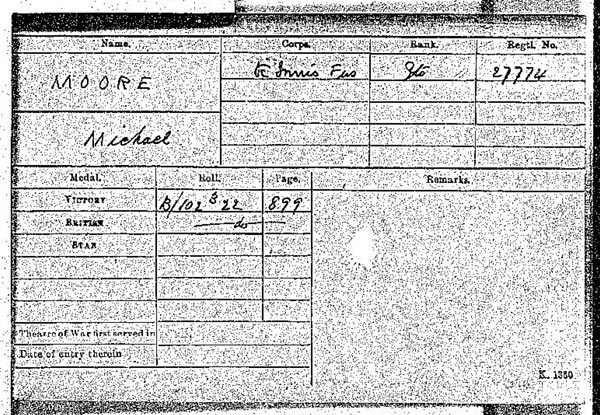 Name. Corps. Rank. Regtl. No.
MOORE R Innis Fus Pte 27774
Michael
Medal. Roll. Page. Remarks.
VICTORY B/102 B 22 899
BRITISH do
STAR
Theatre of War first served in
Date of entry therein
K. 1380